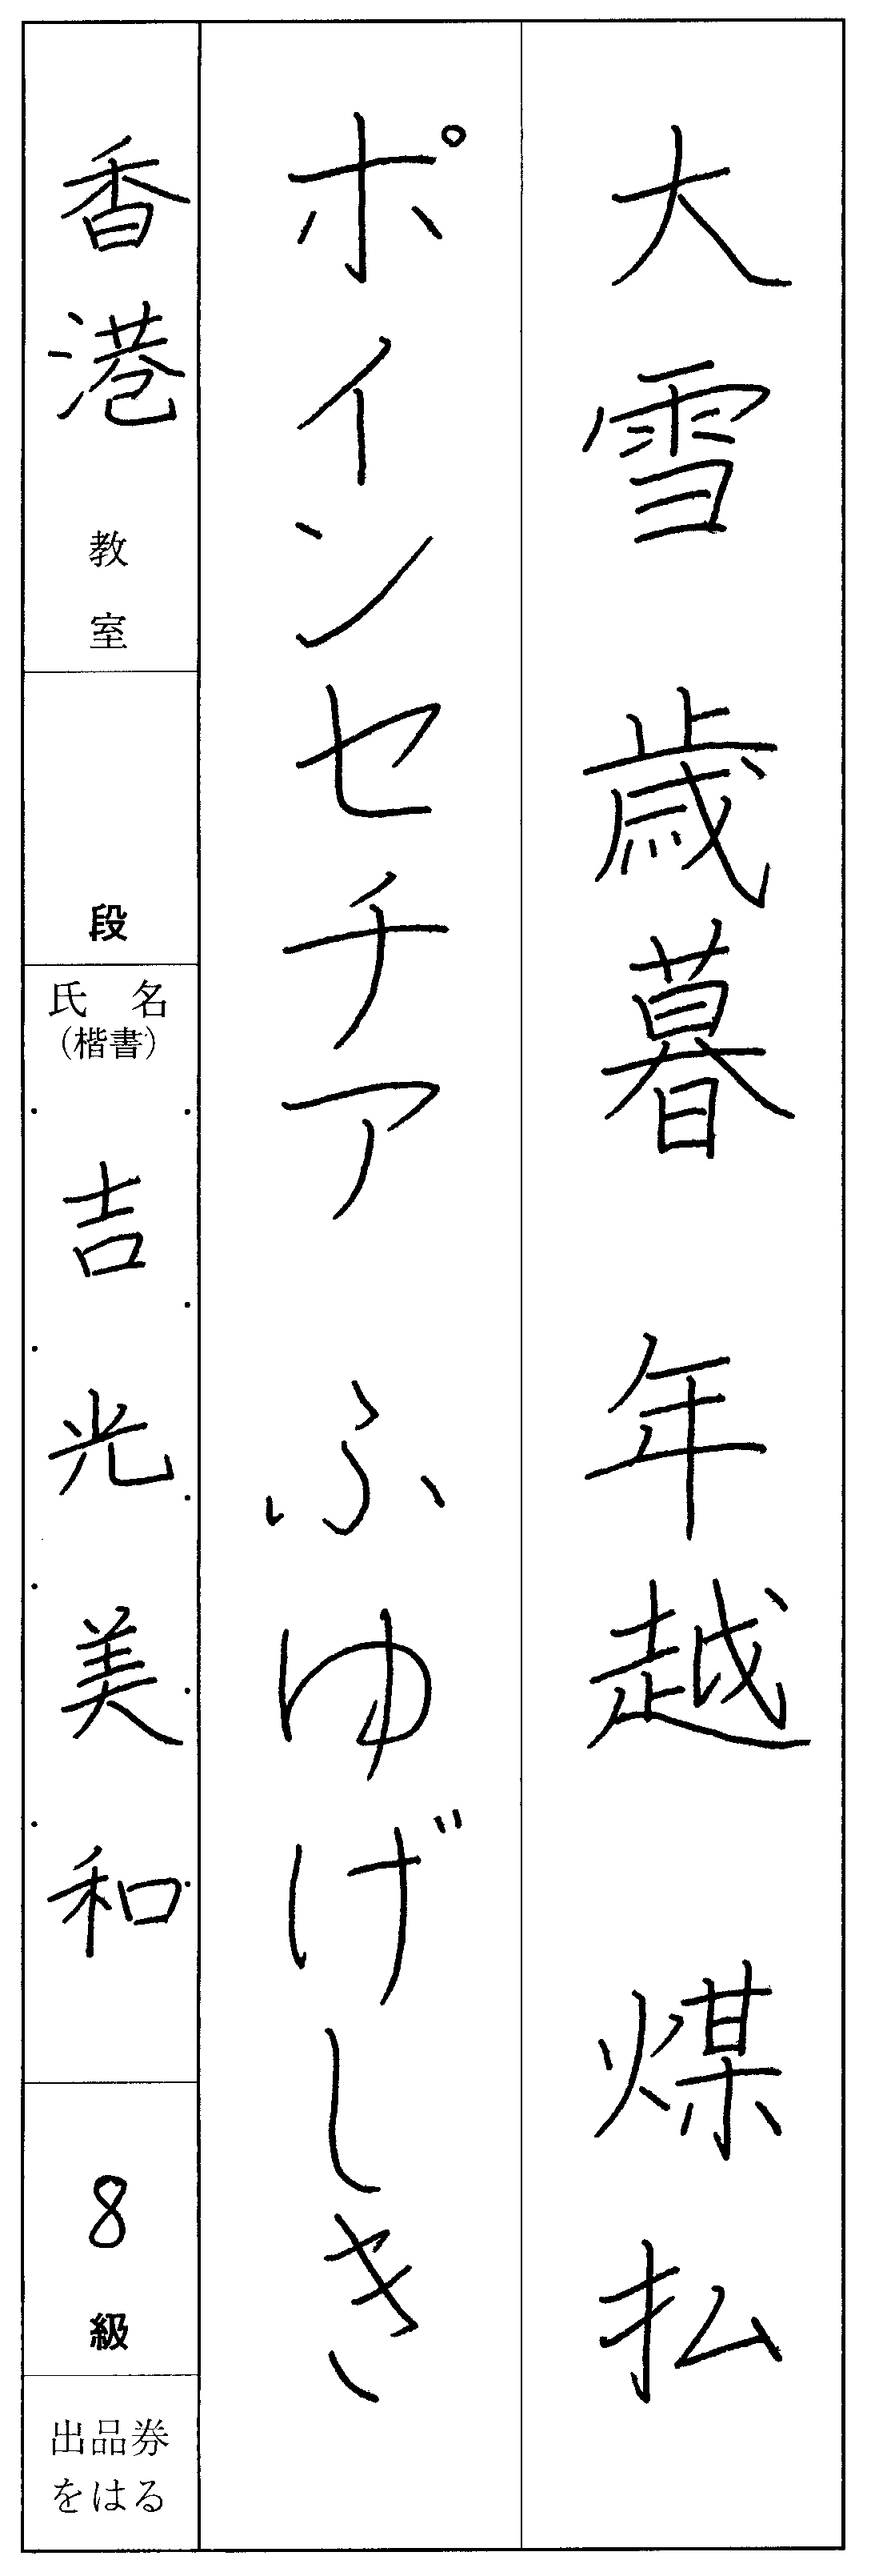 大雪 歳暮 年越 煤払
ポインセチア ふゆげしき
香港 教室
段
氏 名
（楷書）
吉光美和
8 級
出品券
をはる